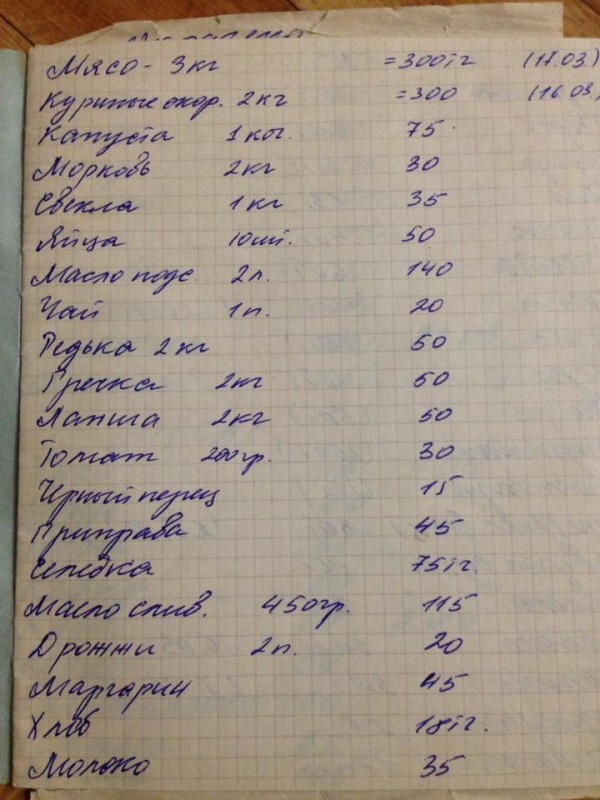 Мясо - 3кг =300тг (17.03.)
Куриные окор. 2кг =300 (16.03.)
Капуста 1коч. 75
Морковь 2кг 30
Свекла 1кг 35
Яйца 10шт. 50
Масло подс. 2л. 140
Чай 1п. 20
Редька 2кг 50
Гречка 2кг 60
Лапша 2кг 50
Томат 200гр. 30
Чёрный перец 15
Приправа 45
Селёдка 75тг.
Масло слив. 450гр. 115
Дрожжи 2п. 20
Маргарин 45
Хлеб 18тг.
Молоко 35